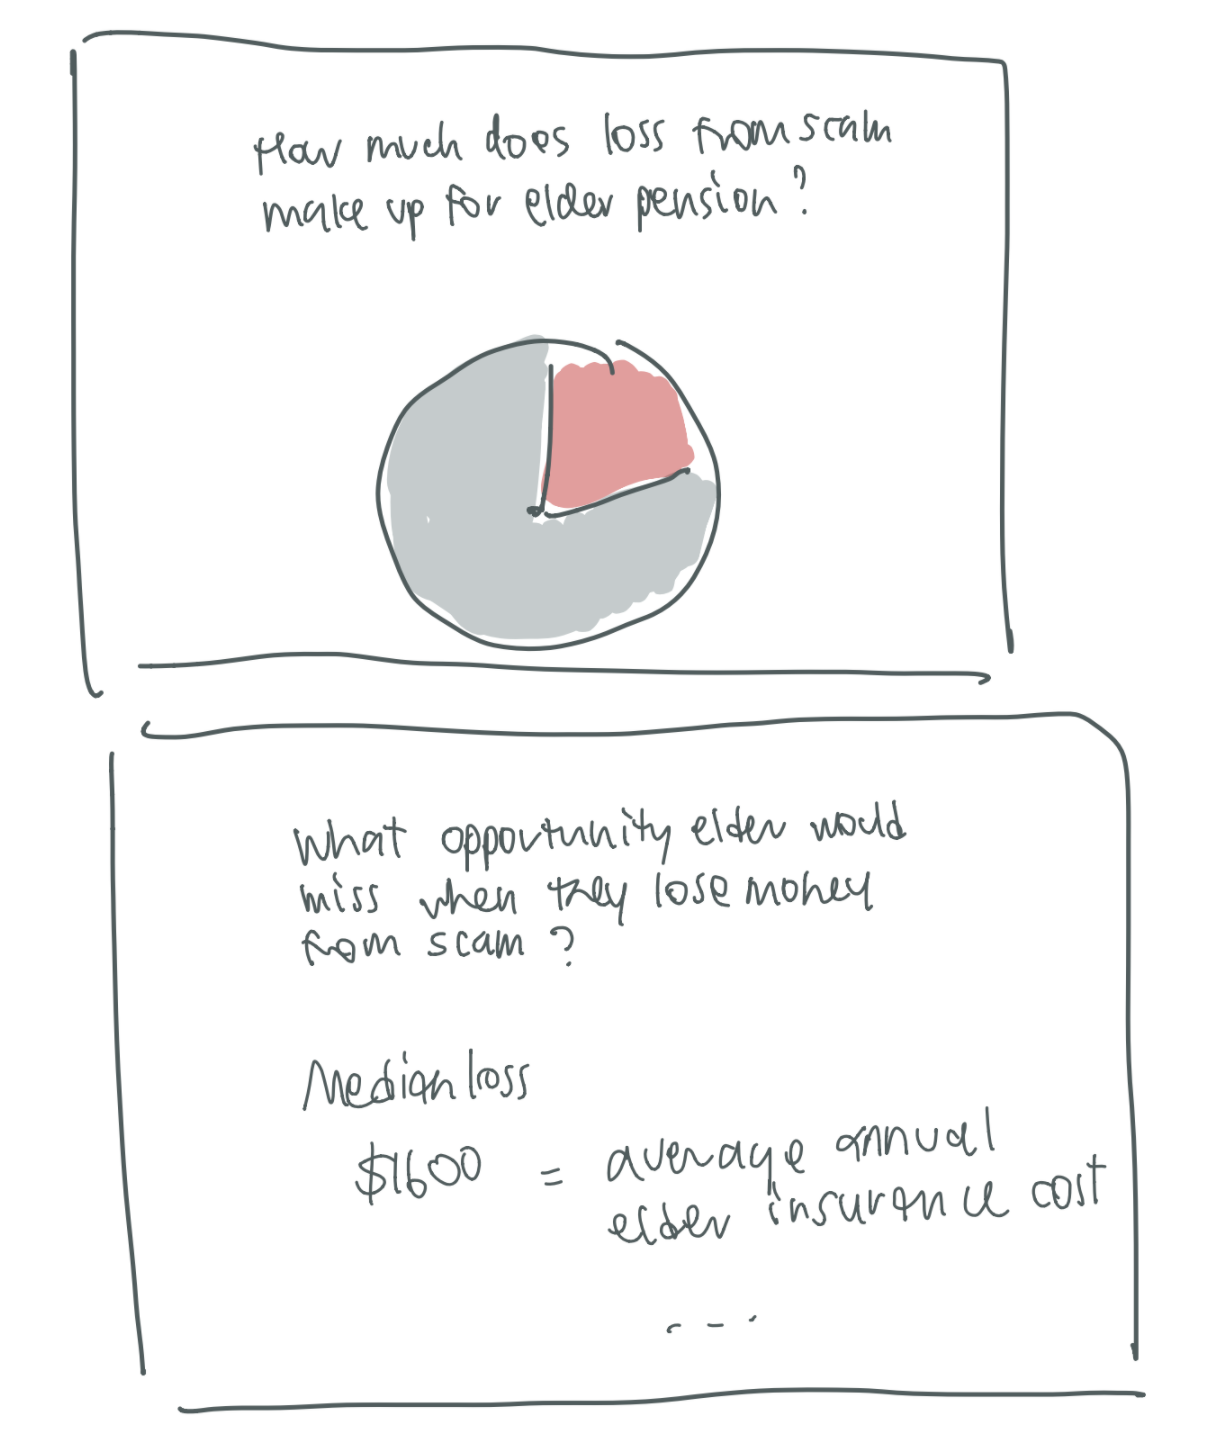 How much does loss from scam
make up for elder pension?
What opportunity elder would
miss when they lose money
from scam?
Median loss
$1600 = average annual
elder insurance cost
---